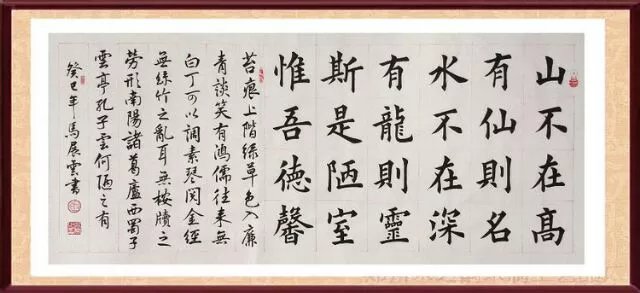 山不在高
有仙則名
水不在深
有龍則靈
斯是陋室
惟吾德馨
苔痕上階綠草色入廉
青談笑有鴻儒往来無
白丁可以調素琴閱金經
無絲竹之亂耳無桉牘之
勞形南陽諸葛廬西蜀子
雲亭孔子雲何陋之有
癸巳年馬展雲書